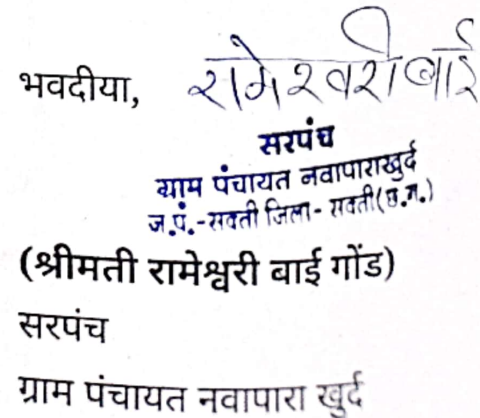 भवदीया, रामेश्वरी बाई
सरपंच
ग्राम पंचायत नवापाराखुर्द
ज.पं.-सक्ती जिला-सक्ती(छ.ग.)
(श्रीमती रामेश्वरी बाई गोंड)
सरपंच
ग्राम पंचायत नवापारा खुर्द